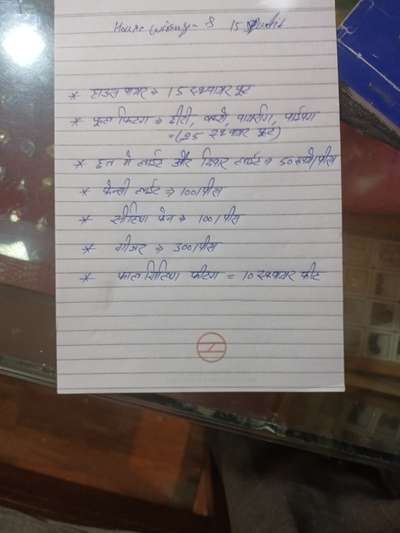 House wiring - 8 15
* हाउस वायर → 15 स्क्वायर फूट
* फूल फिटिंग → डीटी, बक्से, वायरिंग, पाईप
= (25 स्क्वायर फ़ूट)
* हल मे लाईट और लाईट → 50 रूपये/पीस
* फेन्सी लाईट → 100/पीस
* सीलिंग फेन → 100/पीस
* गीजर → 300/पीस
* फाल सिलिंग फिटिंग = 10 स्क्वायर फीट